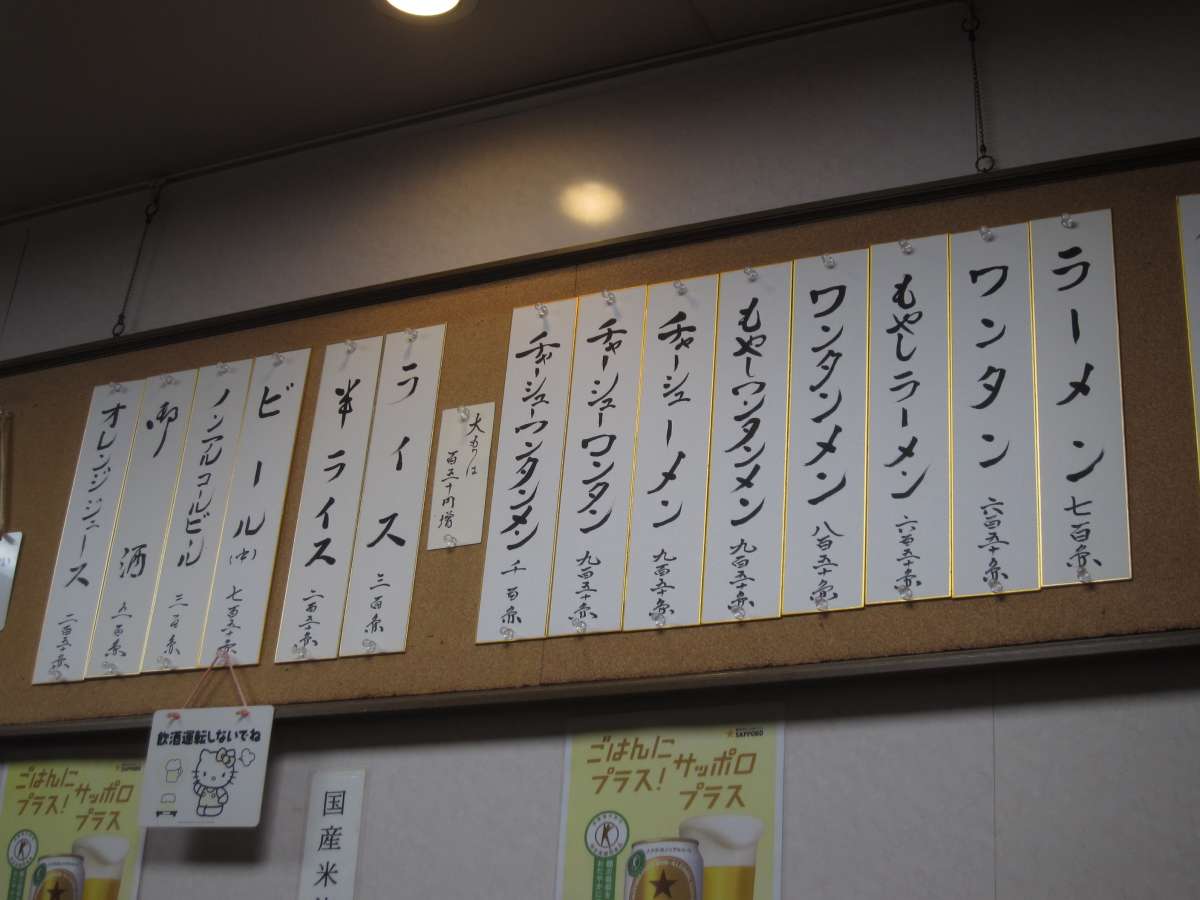 ラーメン 七百円
ワンタン 六百五十円
もやしラーメン 六百五十円
ワンタンメン 八百五十円
もやしワンタンメン 九百五十円
チャーシューメン 九百五十円
チャーシューワンタン 九百五十円
チャーシューワンタンメン 千百円
大もりは
百五十円増
ライス 三百円
半ライス 二百五十円
ビール(中) 七百五十円
ノンアルコールビール 三百円
御酒 百円
オレンジジュース 二百五十円
飲酒運転しないでね
ごはんに
プラス!
サッポロ
プラス
国産米
SAPPORO
ごはんに
プラス!
サッポロ
プラス